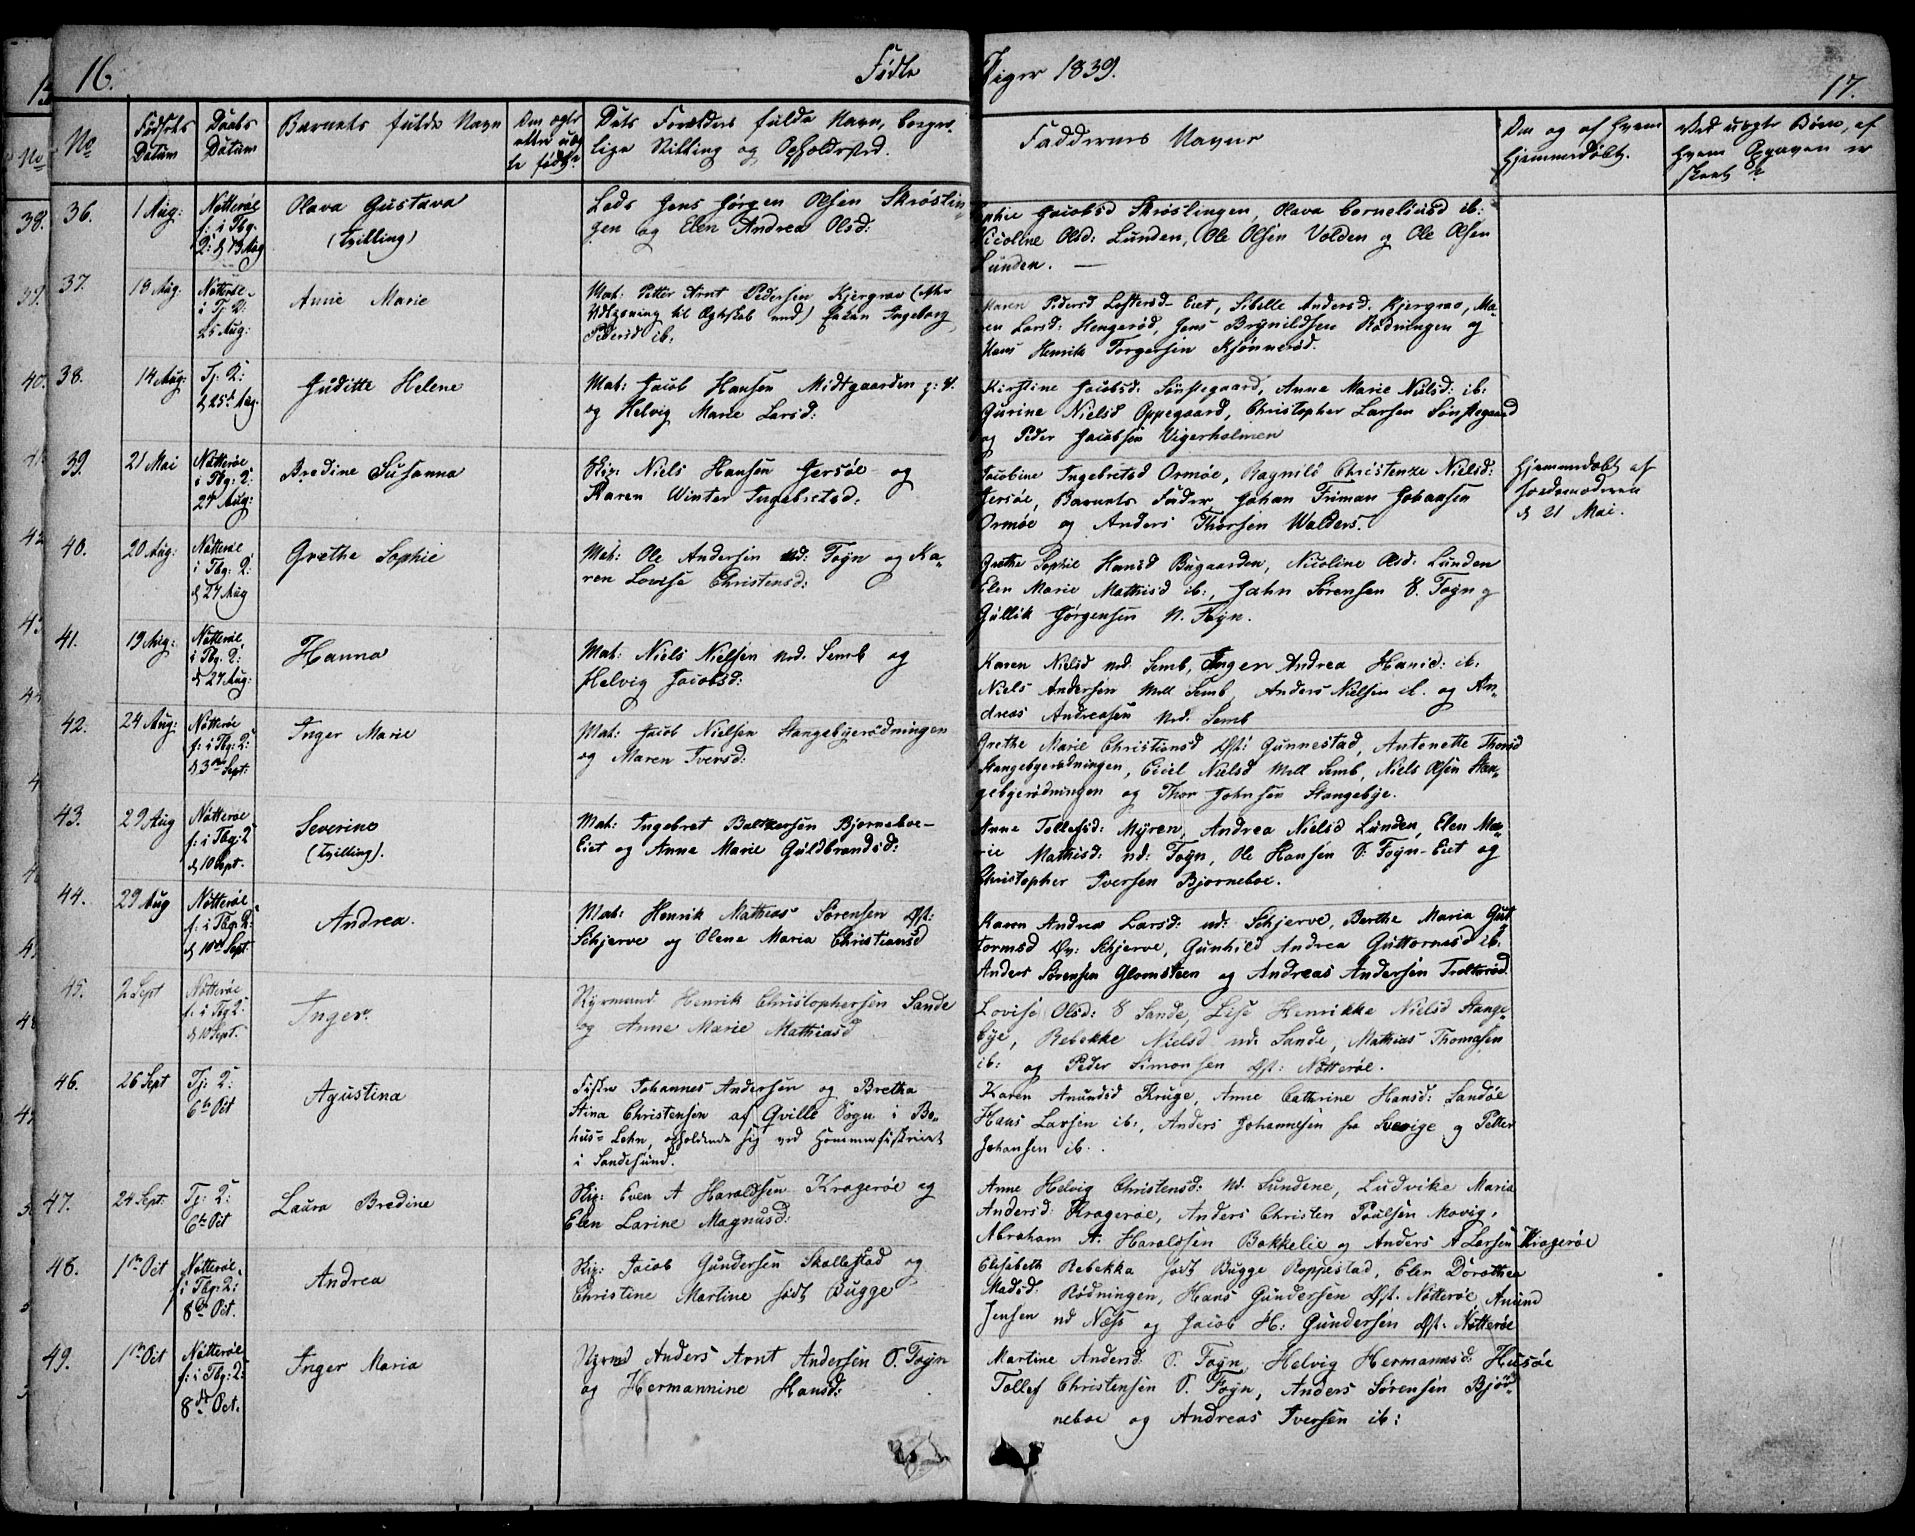 16.
Fødte
Piger 1839.
17.
No
Fødsels Datum
Daabs Datum
Barnets fulde Navn
Om ægte eller uægte født
Dets Forældres fulde Navn, borgerlige Stilling og Opholdssted.
Faddernes Navne
Om og af hvem hjemmedøbt.
Ved uægte Børn, af hvem Opgaven er skeet
36.
1 Aug:
Nøtterøe
f: i Tbg:
d 13 Aug
Olava Gustava
(Tvilling)
Lods Jens Jørgen Olsen Skrøstin-
gen og Elen Andrea Olsd:
Sophie Jacobsd Skrøslingen, Olava Corneliusd ib:
Nicoline Olsd: Lunden, Ole Olsen Volden og Ole Olsen
Lunden.
37.
13 Aug.
Nøtterøe
25 Aug:
Anne Marie
Mat: Petter Arnt Pedersen Kjergrav
til Ægteskab med) Ingeborg
Pedersd ib.
Karen Pedersd Eiet, Sibelle Andersd. Kjergrav, Ma-
ren Larsd: Hengerød, Jens Brynildsen Rødningen og
Hans Henrik Torgersen Kjønnerød.
38.
14 Aug:
Tj: K:
d 25 Aug.
Juditte Helene
Mat: Jacob Hansen Midtgaarden
og Helvig Marie Larsd:
Kirstine Jacobsd: Sønstegaard, Anne Marie Nielsd: ib:
Gurine Nielsd Oppegaard, Christopher Larsen Sønstegaard
og Peder Jacobsen Vigerholmen
39.
21 Mai
Nøtterøe
i Tbg: K:
27 Aug:
Bredine Susanna
Skip: Niels Hansen Jersøe og
Karen Winter Ingebretsd:
Jacobine Ingebretsd Ormøe, Ragnild Christenze Nielsd:
Jersøe, Barnets Fader, Johan Friman Johansen
Ormøe og Anders Thorsen Walders.
Hjemmedøbt af
Jordemoderen
d 21 Mai.
40.
20 Aug:
Nøtterøe
i Tbg: K:
d 27 Aug
Grethe Sophie
Mat: Ole Andersen nd: Føyn og Ka-
ren Lovise Christensd:
Grethe Sophie Hansd Bugaarden, Nicoline Olsd: Lunden
Elen Marie Mathisd ib:, John Sørensen S. Føyn og
Gullik Jørgensen N. Føyn.
41.
19 Aug:
Nøtterøe
i Tbg: K:
d 27 Aug:
Hanna
Mat: Niels Nielsen nd. Semb og
Helvig Jacobsd:
Karen Nielsd nd. Semb, Ingen Andrea Hansd: ib:
Niels Andersen Mell Semb, Anders Nielsen ib. og An-
dreas Andreasen nd. Semb
42.
24 Aug:
Nøtterøe
f: i Tbg: K:
d 3 Sept:
Inger Marie
Mat: Jacob Nielsen Stangebyerødningen
og Maren Iversd:
Grethe Marie Christiansd Øst: Gunnestad, Antonette Thorsd
Stangebyerødningen, Nielsd Mell Semb, Niels Olsen Stan-
gebyerødningen og Thor Johnsen Stangebye.
43.
29 Aug
Nøtterøe
f: i Tbg: K
d 10 Sept.
Severine
(Tvilling).
Mat: Ingebret Baltzersen Bjorneboe-
Eiet og Anne Marie Guldbrandsd:
Anne Tollefsd: Myren, Andrea Nielsd Lunden, Elen Ma-
rie Mathisd: nd: Føyn, Ole Hansen S. Føyn-Eiet og
Christopher Iversen Bjorneboe.
44.
29 Aug
Nøtterøe
f: i Tbg: K:
d 10 Sept.
Andrea.
Mat: Henrik Mathias Sørensen Øst:
Schjerve og Olene Maria Christiansd
Karen Andrea Larsd: nd: Schjerve, Berthe Maria Gut-
tormsd Øv: Schjerve, Gunhild Andrea Guttormsd ib:
Anders Sørensen Glomsteen og Andreas Andersen Trolterød
45.
2 Sept
Nøtterøe
f: i Tbg K:
d 10 Sept.
Inger.
Styrmand Henrik Christophersen Sande
og Anne Marie Mathiasd
Lovise Olsd: S Sande, Lise Henrikke Nielsd Stange-
bye, Rebekke Nielsd nd. Sande, Mathias Thomasen
ib: og Peder Simonsen Øst: Nøtterøe.
46.
26 Sept
Tj: K:
6 Oct
Agustina
Fisker Johannes Andersen og Bretha
Stina Christensen af Qville Sogn i Bo-
hus-Lehn, opholdende sig ved Hommerfiskeriet
i Sandøsund.
Karen Anundsd Kruge, Anne Cathrine Hansd: Sandøe
Hans Larsen ib:, Anders Johannesen fra Sverige og Petter
Johansen ib.
47.
24 Sept.
Tj: K:
6 Oct
Laura Bredine
Skip: Even A Haraldsen Kragerøe og
Elen Larine Magnusd:
Anne Helvig Christensd: Nd. Sundene, Ludvike Maria
Andersd: Kragerøe, Anders Christen Poulsen Movig,
Abraham A. Haraldsen Bakkelie og Anders A Larsen Kragerøe
48.
1 Oct
Nøtterøe
f: i Tbg: K:
8 Oct.
Andrea
Skip: Jacob Gundersen Skallestad og
Christine Martine født Bugge
Elisabeth Rebekka født Bugge Roppestad, Elen Dorothea
Madsd: Rødningen, Hans Gundersen Øst. Nøtterøe, Anund
Jensen nd Næss og Jacob H: Gundersen Øst. Nøtterøe
49.
1 Oct
Nøtterøe
f: i Tbg: K:
8 Oct.
Inger Maria
Styrmd Anders Arnt Andersen S. Føyn
og Hermannine Hansd:
Martine Andersd S. Føyn, Helvig Hermannsd: Husøe
Tollef Christensen S. Føyn, Anders Sørensen Bjør-
neboe og Andreas Iversen ib: